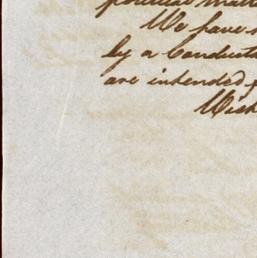 political matt
We have
by a Conducto
are intended f
Wish